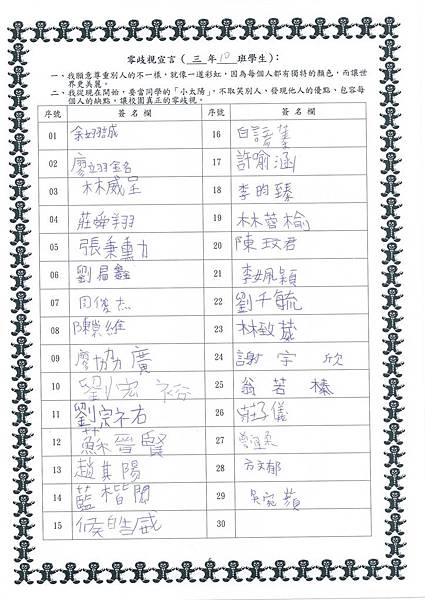 零歧視宣言（三年10班學生）：
一、我願意尊重別人的不一樣，就像一道彩虹，因為每個人都有獨特的顏色，而讓世
界更美麗。
二、我從現在開始，要當同學的「小太陽」，不取笑別人，發現他人的優點、包容每
個人的缺點，讓校園真正的零歧視。
序號 簽名欄 序號 簽名欄
01 余翊誠 16 白
02 廖翊銘 17 許喻涵
03 林威呈 18 李昀臻
04 莊舜翔 19 林蓉榆
05 張秉勳 20 陳玟君
06 劉昌鑫 21 李姵穎
07 周俊杰 22 劉千毓
08 陳 維 23 林致葳
09 廖協廣 24 謝宇欣
10 劉宏裕 25 翁若榛
11 劉宗祐 26 莊子儀
12 蘇晉賢 27
13 趙其陽 28 方文郁
14 藍楷閎 29 吳宛蘋
15 侯皓威 30